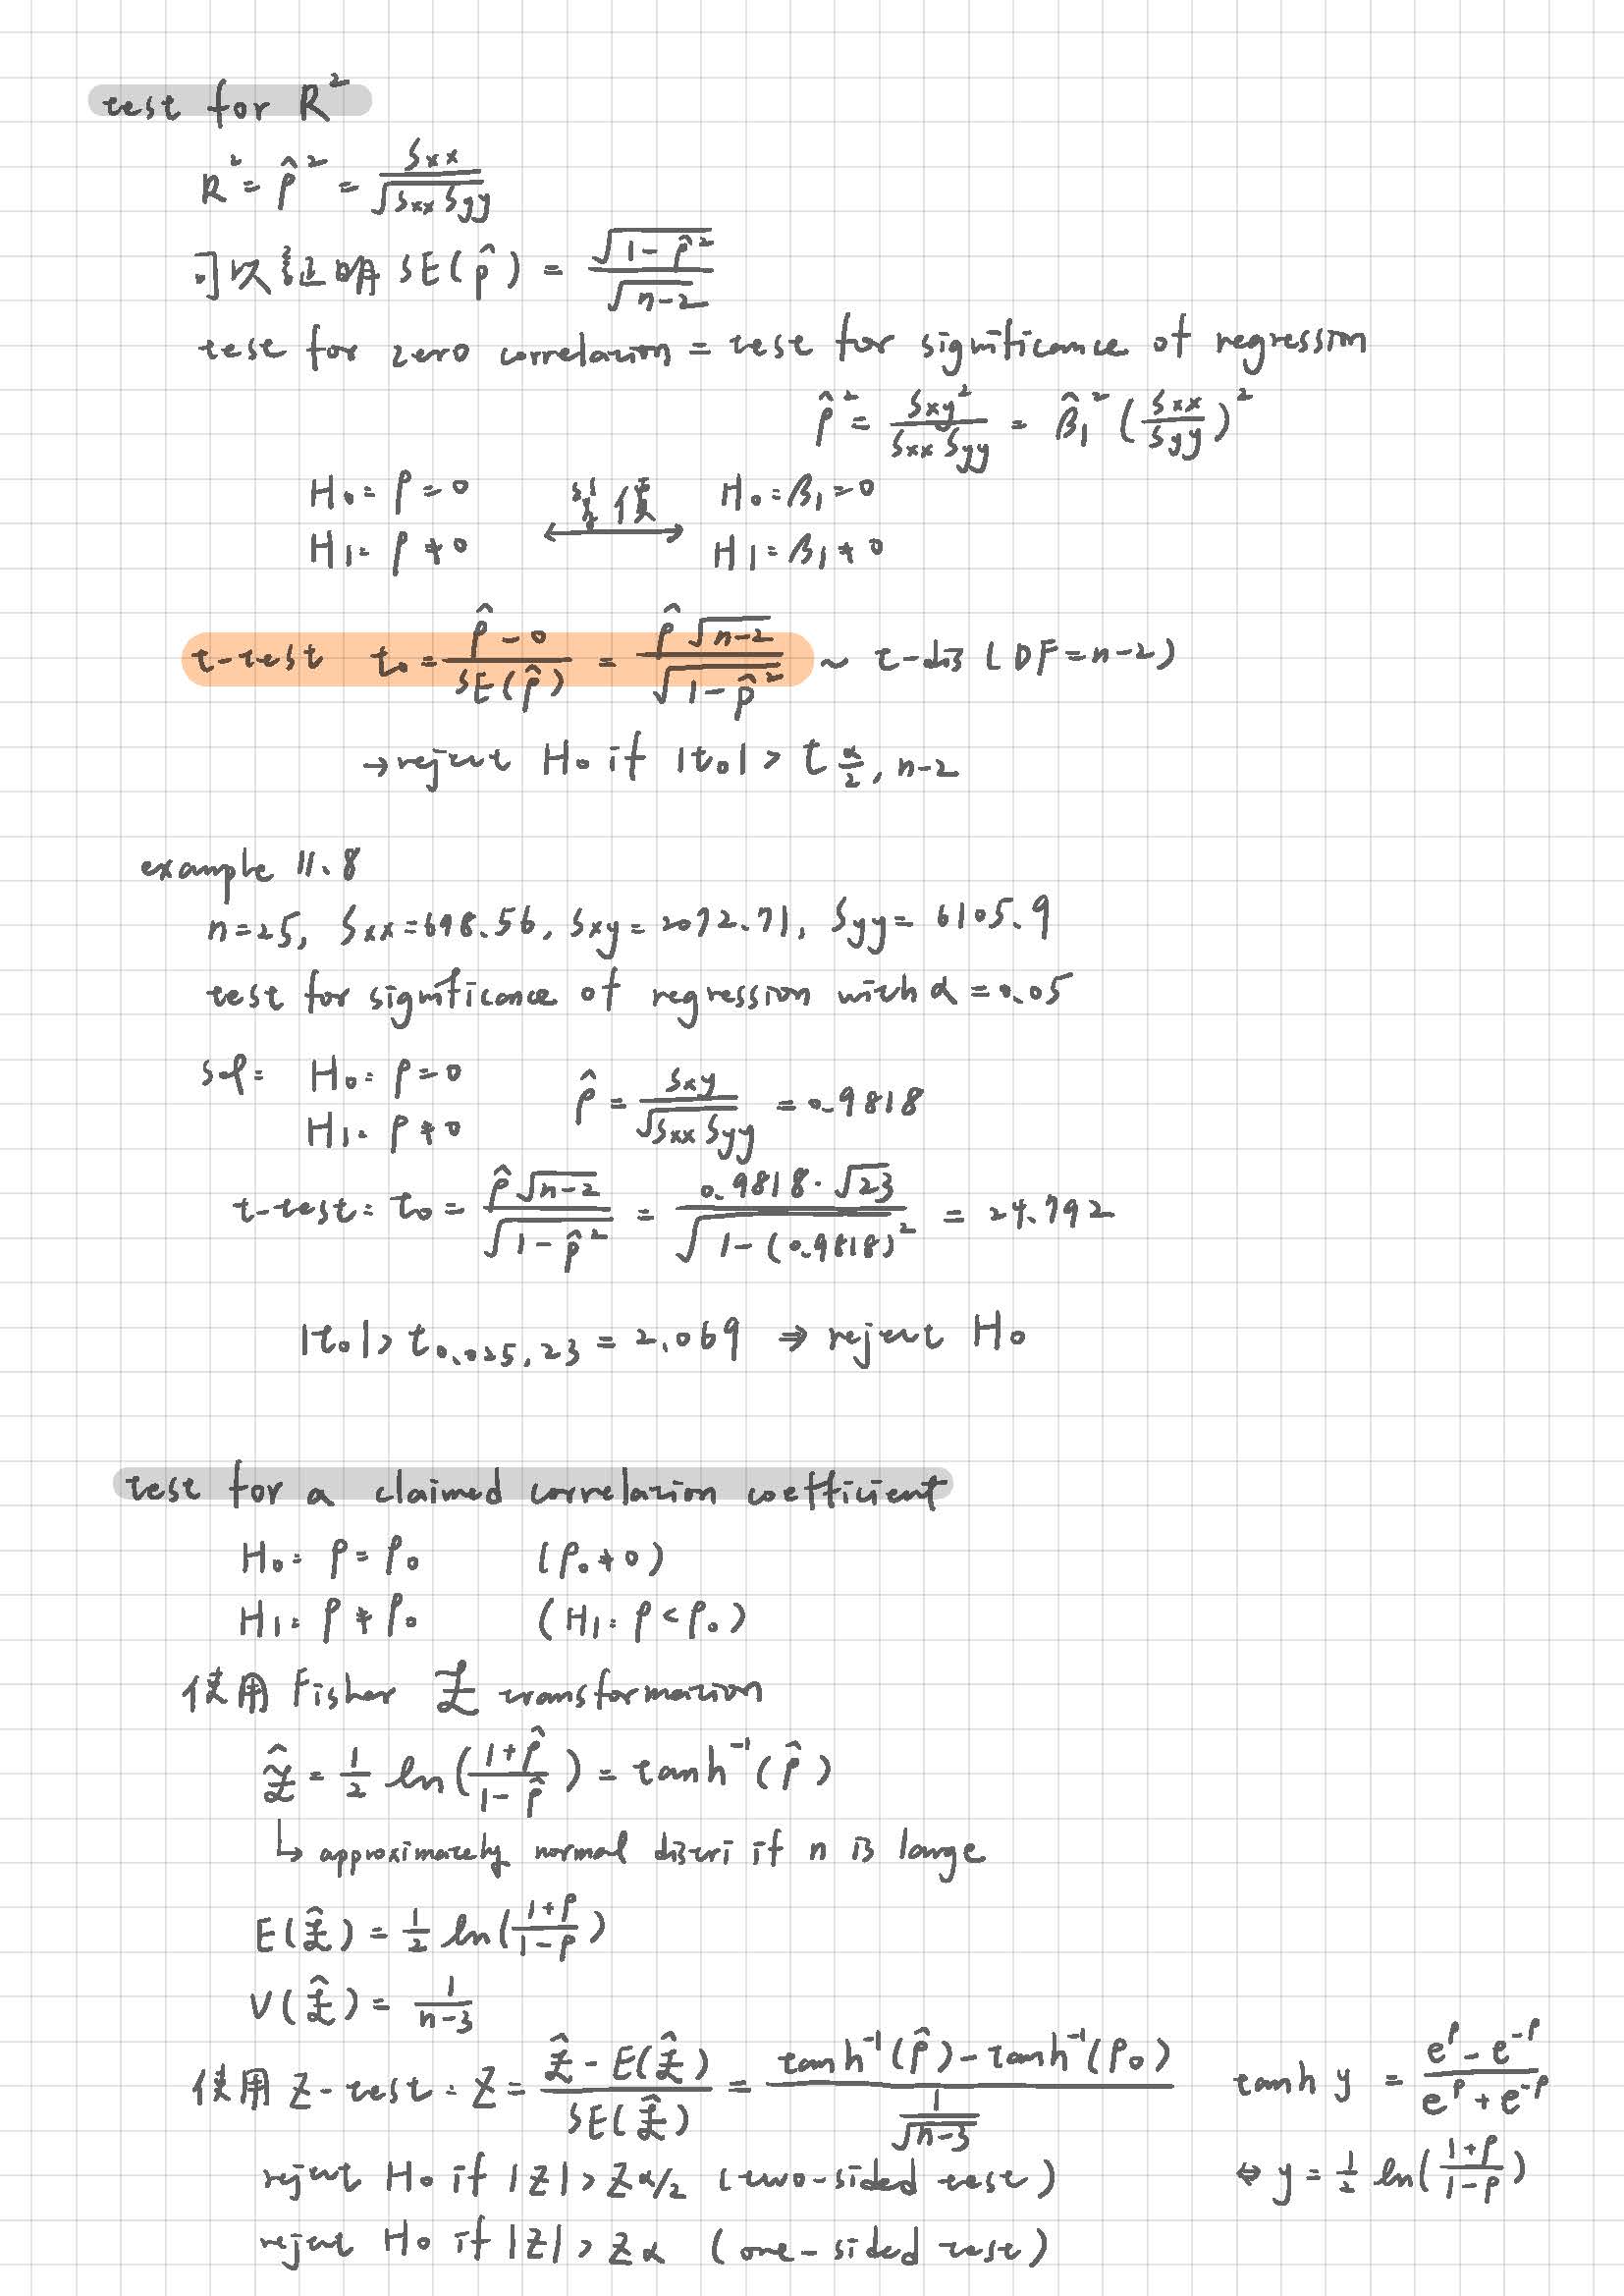 test for R²
R² = ρ̂² = Sxx / √(Sxx Syy)
可以証明 SE(ρ̂) = √(1-ρ̂²) / √(n-2)
test for zero correlation = test for significance of regression
ρ̂² = Sxy² / (Sxx Syy) = β̂₁² (Sxx / Syy)²
H₀: ρ = 0 等價 H₀: β₁ = 0
H₁: ρ ≠ 0 ⟷ H₁: β₁ ≠ 0
t-test t₀ = (ρ̂ - 0) / SE(ρ̂) = ρ̂ √(n-2) / √(1-ρ̂²) ~ t-dis (DF = n-2)
→ reject H₀ if |t₀| > t α/2, n-2
example 11.8
n = 25, Sxx = 698.56, Sxy = 2072.71, Syy = 6105.9
test for significance of regression with α = 0.05
sol: H₀: ρ = 0 ρ̂ = Sxy / √(Sxx Syy) = 0.9818
H₁: ρ ≠ 0
t-test: t₀ = ρ̂ √(n-2) / √(1-ρ̂²) = 0.9818 · √23 / √(1-(0.9818)²) = 24.792
|t₀| > t 0.025, 23 = 2.069 ⇒ reject H₀
test for a claimed correlation coefficient
H₀: ρ = ρ₀ (ρ₀ ≠ 0)
H₁: ρ ≠ ρ₀ (H₁: ρ < ρ₀)
使用 Fisher Z transformation
Ẑ = 1/2 ln((1+ρ̂) / (1-ρ̂)) = tanh⁻¹(ρ̂)
↳ approximately normal distri if n is large
E(Ẑ) = 1/2 ln((1+ρ) / (1-ρ))
V(Ẑ) = 1 / (n-3)
使用 Z-test: Z = (Ẑ - E(Ẑ)) / SE(Ẑ) = (tanh⁻¹(ρ̂) - tanh⁻¹(ρ₀)) / (1/√(n-3)) tanh y = (e^ρ - e^-ρ) / (e^ρ + e^-ρ)
reject H₀ if |Z| > Z α/2 (two-sided test) ⇔ y = 1/2 ln((1+ρ) / (1-ρ))
reject H₀ if |Z| > Z α (one-sided test)